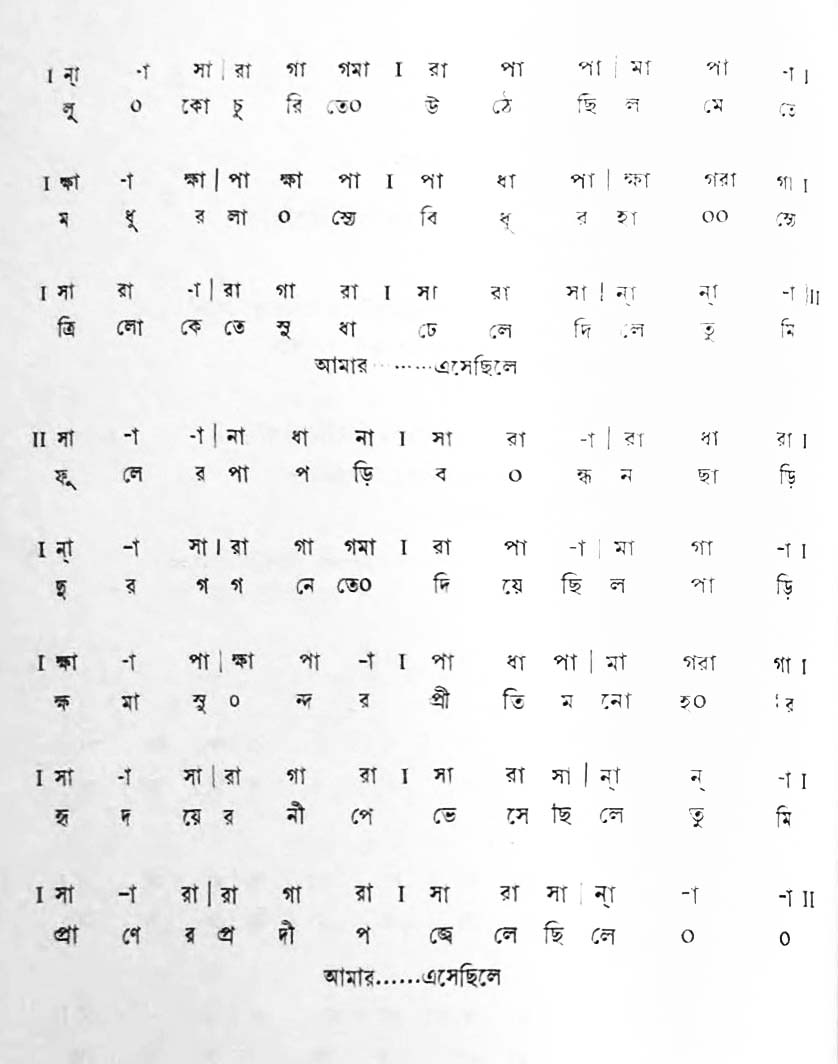 I ন্া -া সা | রা গা গমা I রা পা পা | মা পা -া I
লু ০ কো চু রি তে০ উ ঠে ছি ল মে তে
I ক্ষা -া ক্ষা | পা ক্ষা পা I পা ধা পা | ক্ষা গরা গা I
ম ধু র লা ০ স্যে বি ধু র হা ০০ স্যে
I সা রা -া | রা গা রা I সা রা সা | ন্া ন্া -া II
ত্রি লো কে তে সু ধা ঢে লে দি লে তু মি
আমার ........এসেছিলে
II সা -া -া | না ধা না I সা রা -া | রা ধা রা I
ফু লে র পা প ড়ি ব ০ ন্ধ ন ছা ড়ি
I ন্া -া সা | রা গা গমা I রা পা -া | মা গা -া I
দূ র গ গ নে তে০ দি য়ে ছি ল পা ড়ি
I ক্ষা -া পা | ক্ষা পা -া I পা ধা পা | মা গরা গা I
ক্ষ মা সু ০ ন্দ র প্রী তি ম নো হ০ র
I সা -া সা | রা গা রা I সা রা সা | ন্া ন্ -া I
হৃ দ য়ে র নী পে ভে সে ছি লে তু মি
I সা -া রা | রা গা রা I সা রা সা | ন্া -া -া II
প্রা ণে র প্র দী প জ্বে লে ছি লে ০ ০
আমার......এসেছিলে